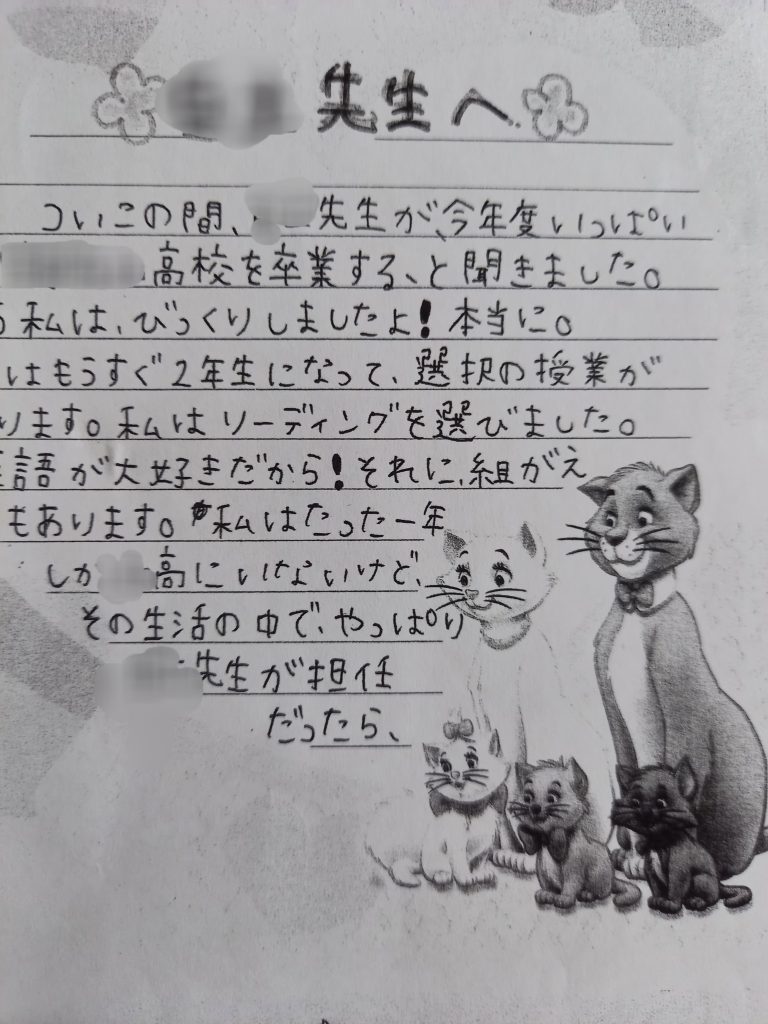 先生へ
ついこの間、先生が、今年度いっぱい
高校を卒業する、と聞きました。
私は、びっくりしましたよ!本当に。
はもうすぐ2年生になって、選択の授業が
ります。私はリーディングを選びました。
語が大好きだから!それに、組がえ
もあります。私はたった一年
しか高にいけないけど、
その生活の中で、やっぱり
先生が担任
だったら、